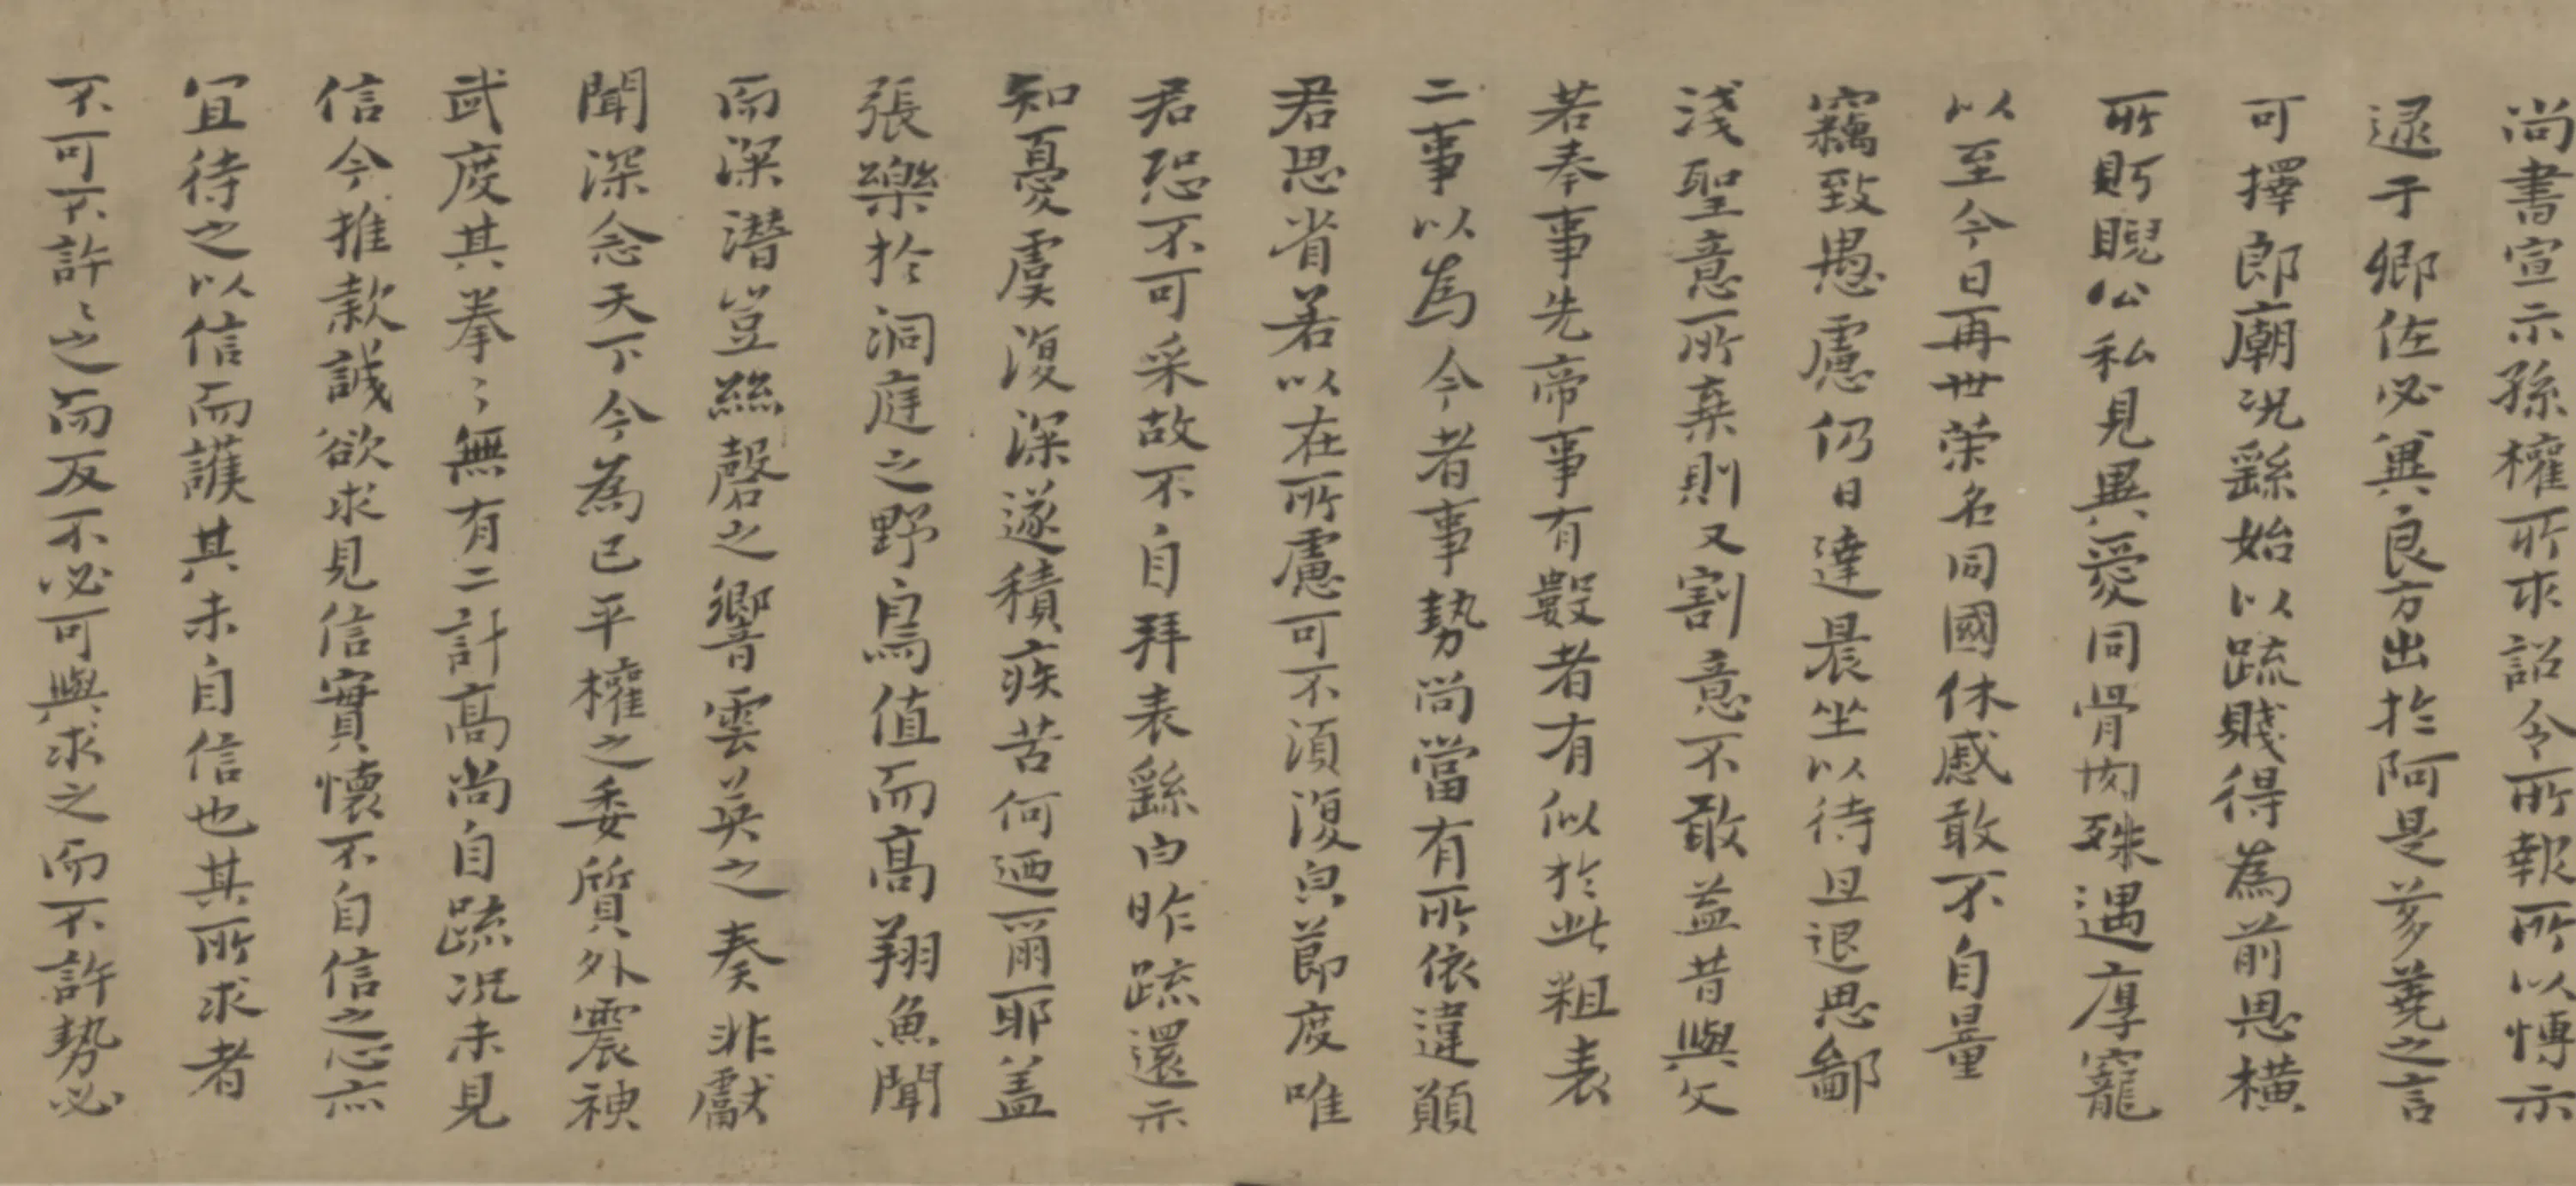 尚書宣示孫權所求詔令所報所以博示
逮于卿佐必冀良方出於阿是芻蕘之言
可擇郎廟況繇始以疏賤得為前恩橫
所眄睨公私見異愛同骨肉殊遇厚寵
以至今日再世榮名同國休慼敢不自量
竊致愚慮仍日達晨坐以待旦退思鄙
淺聖意所棄則又割意不敢益昔與文
若奉事先帝事有數者有似於此粗表
二事以為今者事勢尚當有所依違願
君思省若以在所慮可不須復皃節度唯
君恐不可采故不自拜表繇白昨疏還示
知憂虞復深遂積疾苦何迺爾耶蓋
張樂於洞庭之野鳥值而高翔魚聞
而深潛豈絲磬之響雲英之奏非獻
聞深念天下今為已平權之委質外震神
武度其拳〻無有二計高尚自疏況未見
信今推款誠欲求見信實懷不自信之心亦
宜待之以信而護其未自信也其所求者
不可不許〻之而反不必可與求之而不許勢必